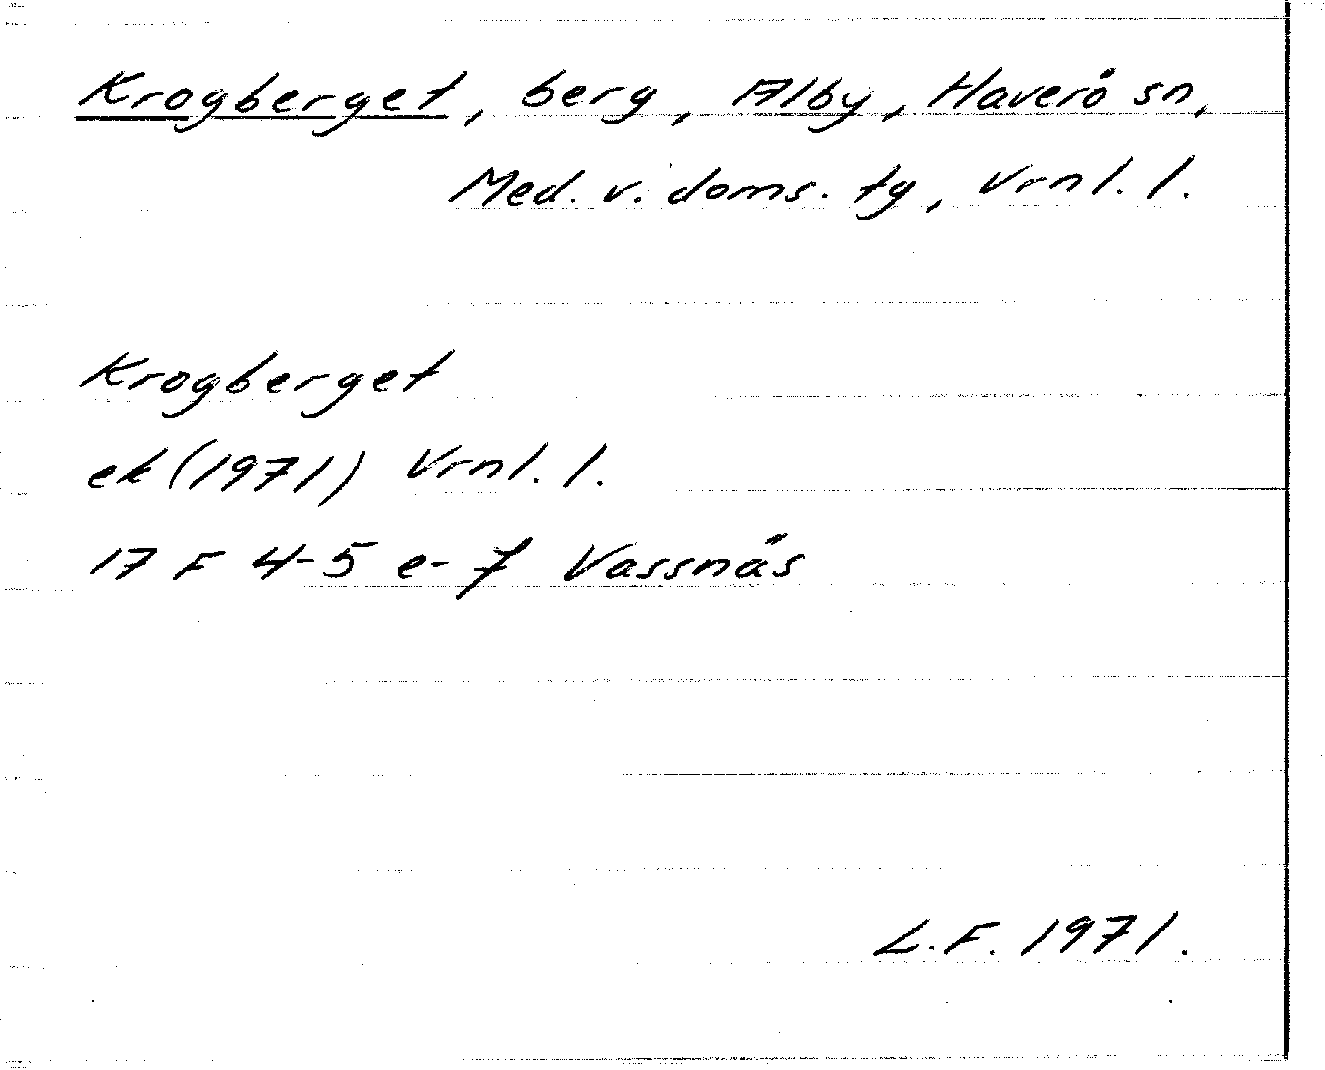 Krogberget, berg, Alby, Haverö sn,
Med. v. doms. tg, Vrnl. l.
Krogberget
ek (1971) Vrnl. l.
17 F 4-5 e-f Vassnäs
L.F. 1971.